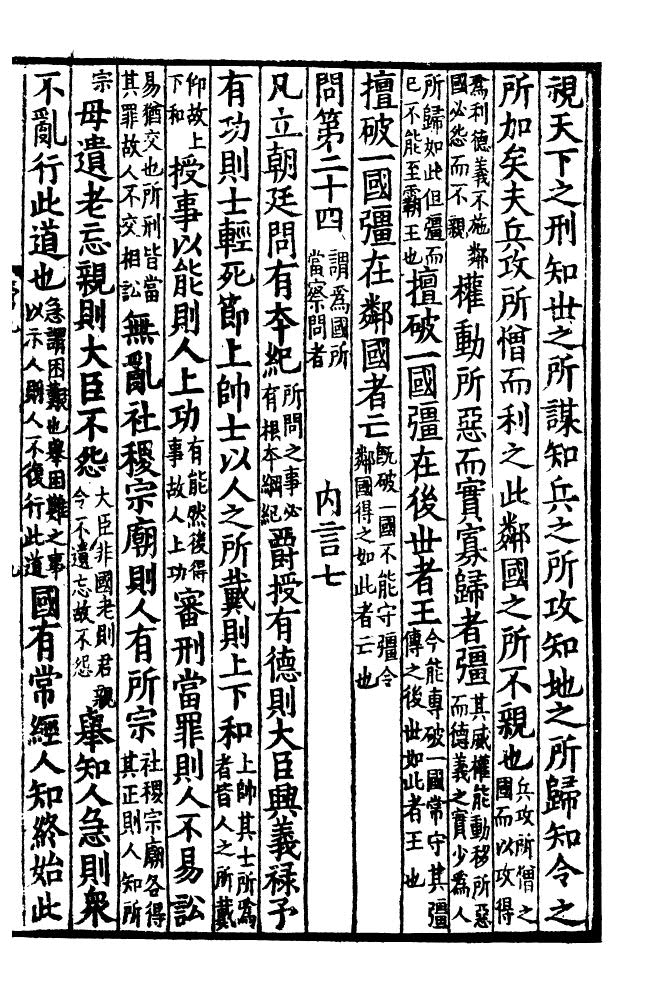 視天下之刑知世之所謀知兵之所攻知地之所歸知令之
所加矣夫兵攻所憎而利之此鄰國之所不親也兵攻所憎之國而以攻得
為利德義不施鄰國必怨而不親權動所惡而實寡歸者彊其威權能動移所惡而德義之實少為人
所歸如此但彊而已不能至霸王也擅破一國彊在後世者王今能專破一國常守其彊傳之後世如此者王也
擅破一國彊在鄰國者亡旣破一國不能守彊令鄰國得之如此者亡也
問第二十四謂為國所當察問者 内言七
凡立朝廷問有本紀所問之事必有根本綱紀爵授有德則大臣興義禄予
有功則士輕死節上帥士以人之所戴則上下和上帥其士所為者皆人之所戴
仰故上下和授事以能則人上功有能然後得事故人上功審刑當罪則人不易訟
易猶交也所刑皆當其罪故人不交相訟無亂社稷宗廟則人有所宗社稷宗廟各得其正則人知所
宗毋遺老忘親則大臣不怨大臣非國老則君親令不遺忘故不怨舉知人急則衆
不亂行此道也急謂困難也舉困難之事以示人則人不復行此道國有常經人知終始此